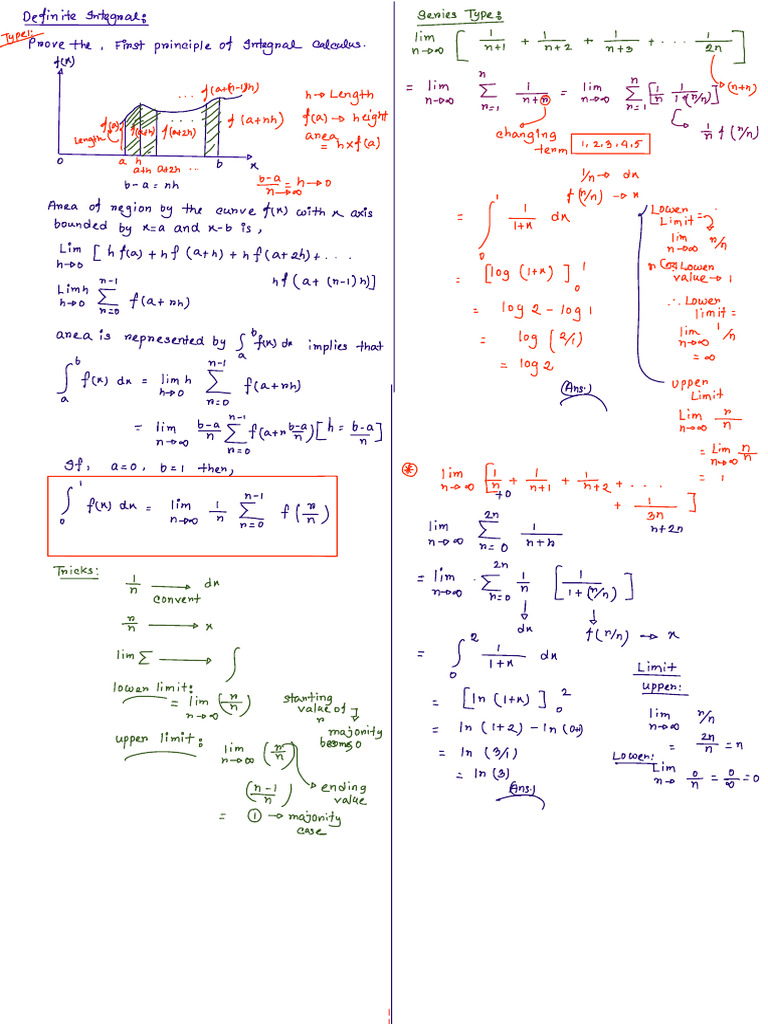 Definite Integral:
Type1:
Prove the, First principle of Integral Calculus.
f(x)
... f(a+(n-1)h)
f(a) f(a+h) f(a+2h) ... f(a+nh)
Length
0 a h a+h a+2h ... b x
b-a = nh
h → Length
f(a) → height
area = h×f(a)
b-a/n = h→0
n→∞
Area of region by the curve f(x) with x axis
bounded by x=a and x-b is,
Lim h→0 [h f(a) + hf (a+h) + hf (a+2h) + ...
hf (a+ (n-1) h)]
Lim h h→0 n-1 ∑ r=0 f(a+rh)
area is represented by ∫ₐᵇ f(x) dx implies that
∫ₐᵇ f(x) dx = lim h h→0 n-1 ∑ r=0 f(a+rh)
= lim n→∞ b-a/n n-1 ∑ r=0 f(a+r b-a/n) [h = b-a/n]
If, a=0, b=1 then,
∫₀¹ f(x) dx = lim n→∞ 1/n n-1 ∑ r=0 f(r/n)
Tricks:
1/n → dx
convert
r/n → x
lim ∑ → ∫
lower limit: = lim n→∞ (r/n)
starting value of r
majority becomes 0
upper limit: lim n→∞ (r/n)
(n-1/n) → ending value
= ① → majority case
Series Type:
lim n→∞ [1/n+1 + 1/n+2 + 1/n+3 + ... 1/2n]
→(n+n)
= lim n→∞ n ∑ r=1 1/n+r = lim n→∞ n ∑ r=1 [1/n 1/1+(r/n)]
changing term 1, 2, 3, 4, 5
1/n f(r/n)
1/n → dx
f(r/n) → x
= ∫₀¹ 1/1+x dx
= [log (1+x)]₀¹
= log 2 - log 1
= log (2/1)
= log 2
(Ans.)
Lower Limit =
lim n→∞ r/n
Lower value → 1
∴ Lower limit =
lim n→∞ 1/n
= ∞
upper Limit
Lim n→∞ r/n
= Lim n→∞ n/n
= 1
* lim n→∞ [1/n + 1/n+1 + 1/n+2 + ...
+0
+ 1/3n]
n+2n
lim n→∞ 2n ∑ r=0 1/n+r
= lim n→∞ . 2n ∑ r=0 1/n [1/1+(r/n)]
dx f(r/n) → x
= ∫₀² 1/1+x dx
= [ln (1+x)]₀²
= ln (1+2) - ln (0+1)
= ln (3/1)
= ln (3)
(Ans.)
Limit
upper:
lim n→∞ r/n
= 2n/n = n
Lower:
Lim n→ 0/n = 0/∞ = 0